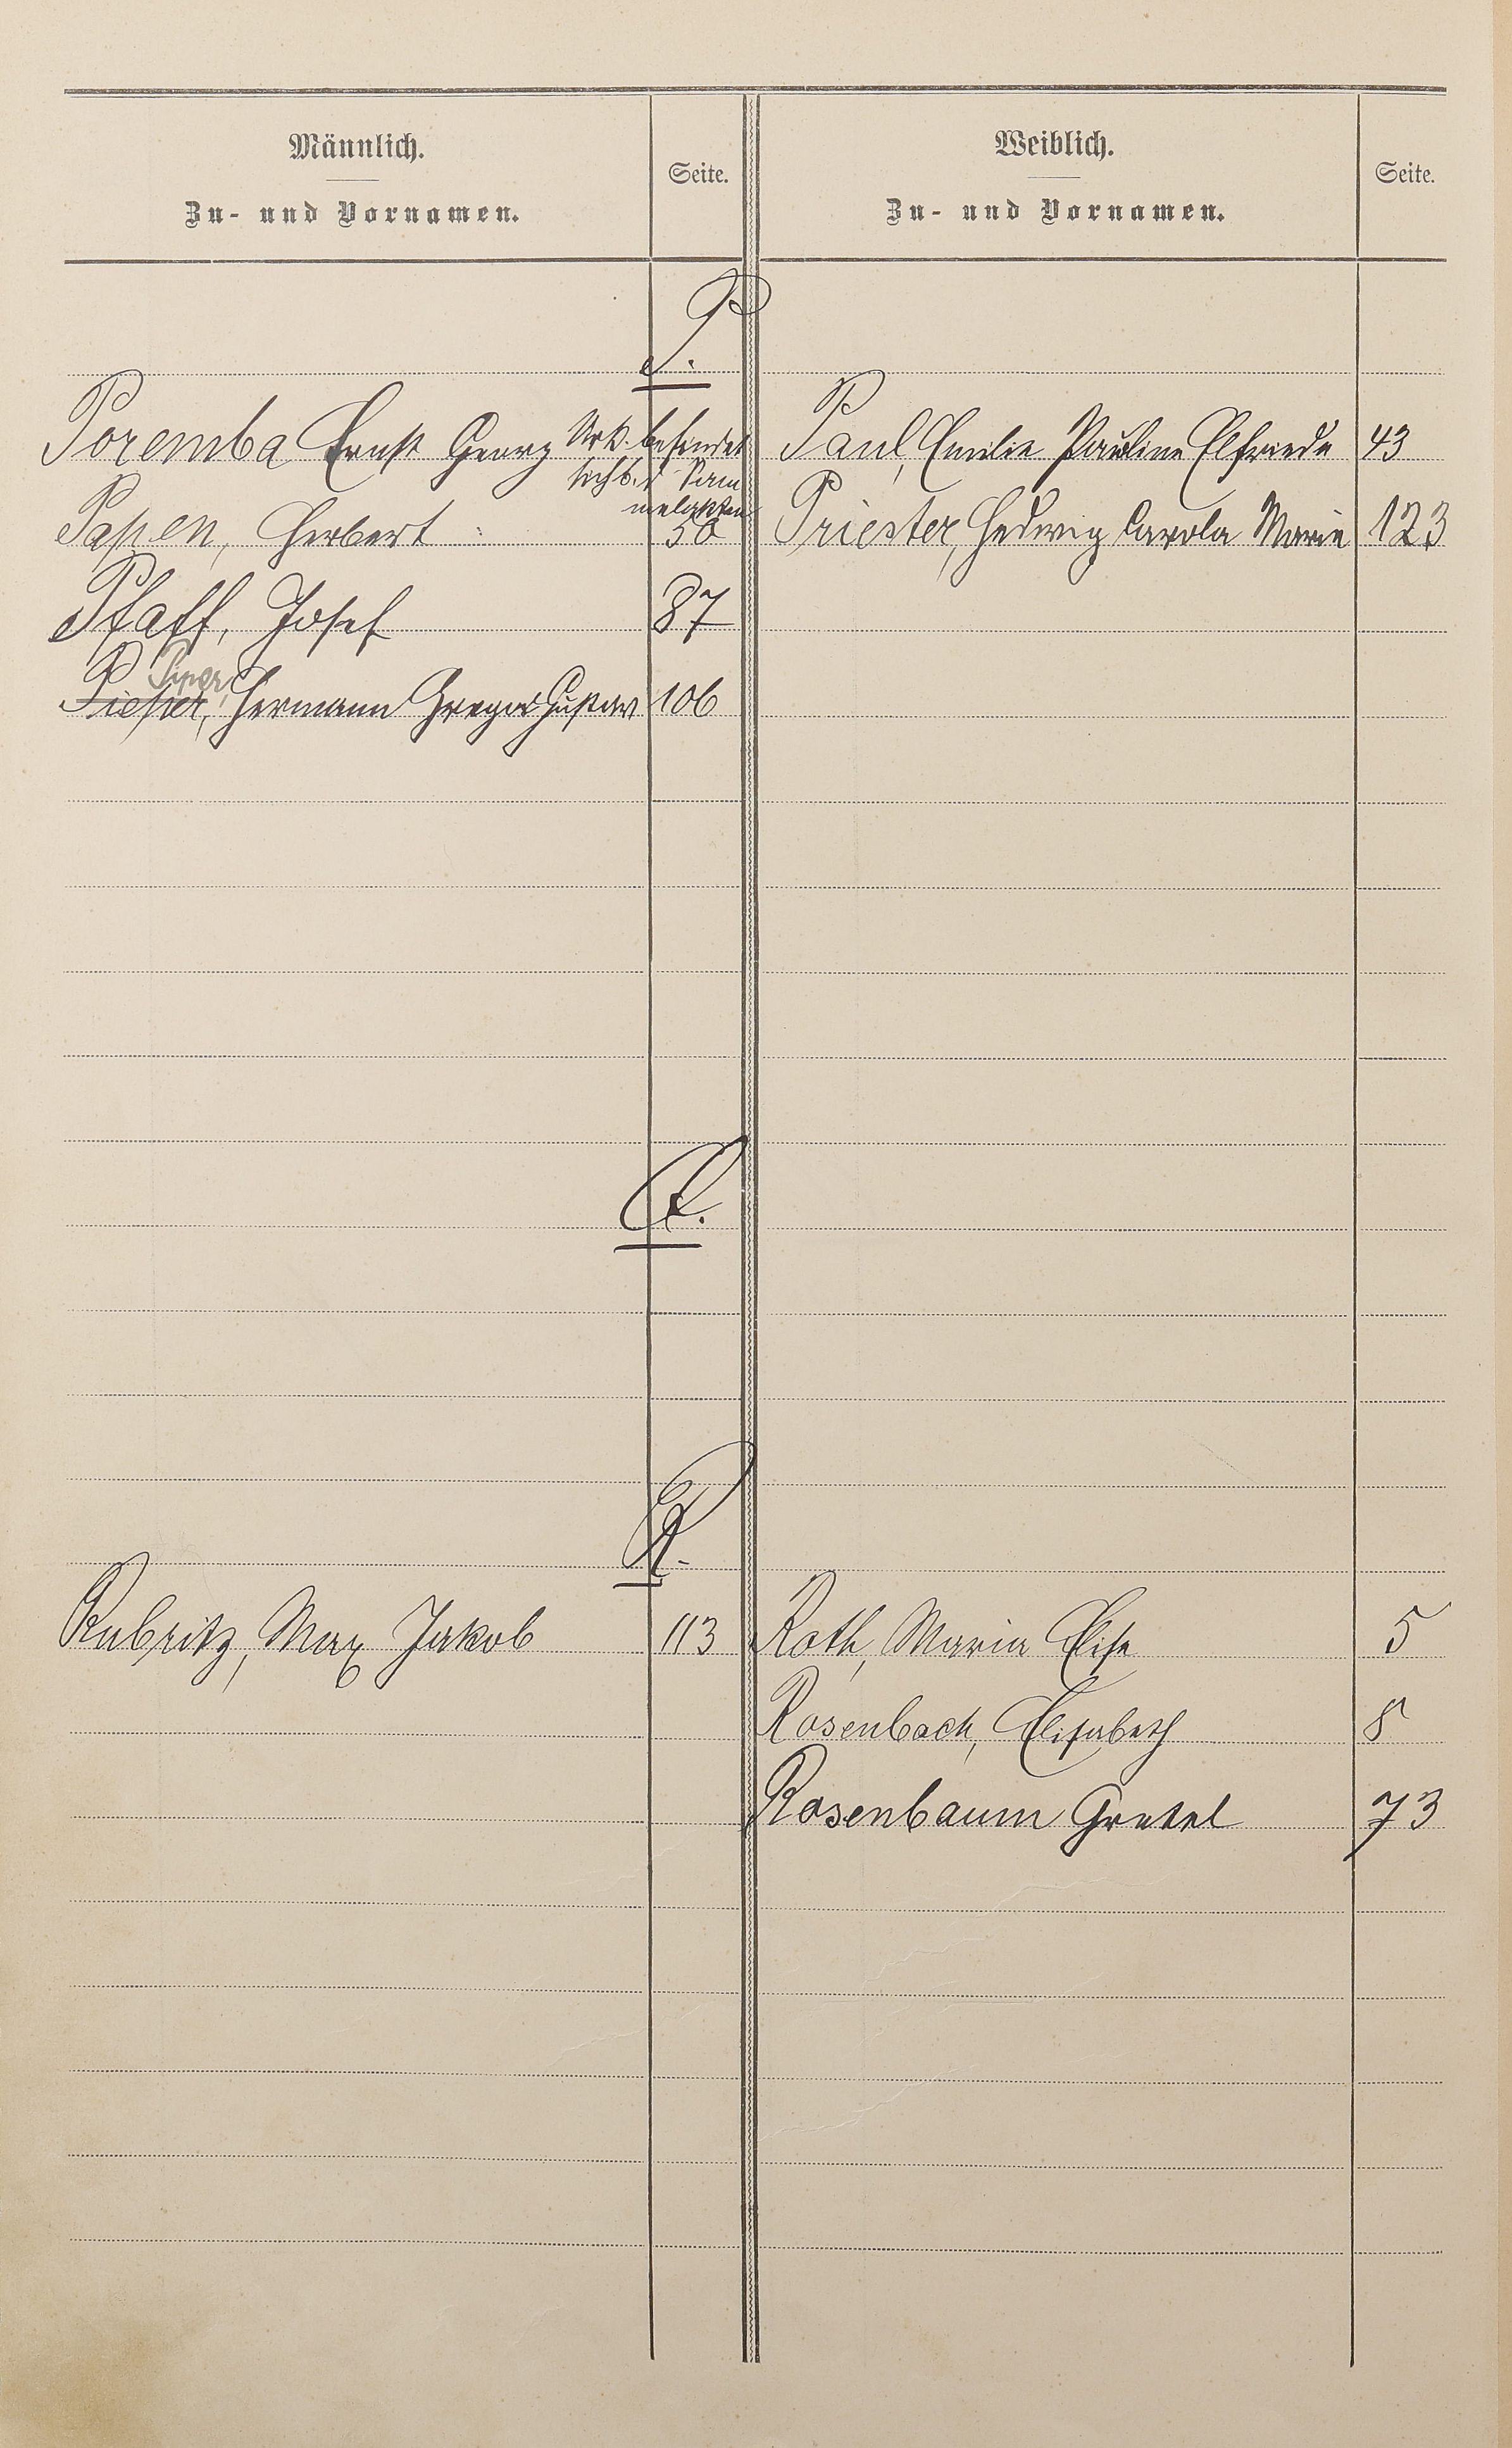 Männlich.
Zu- und Vornamen.
Seite.
Weiblich.
Zu- und Vornamen.
Seite.
P.
Poremba Ernst Georg Urk. befindet
sich b. d. Sam
melakten
Paul, Emilie Pauline Elfriede 43
Papen, Herbert 50
Priester, Hedwig Carola Marie 123
Pfaff, Josef 87
Piper,
Pieper, Hermann Gregor Gustav 106
Q.
R.
Rubritz, Max Jakob 113
Roth, Maria Elise 5
Rosenbach, Elisabeth 8
Rosenbaum Gretel 73